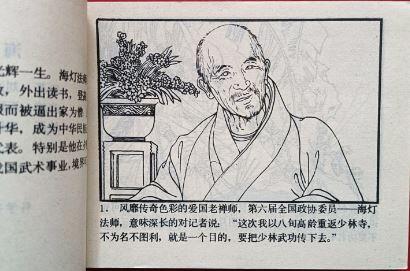 光辉一生。海灯法师
，外出读书，
而被逼出家为僧
华，成为中华民族
表。特别是他在
国武术事业，境界
1．风靡传奇色彩的爱国老禅师，第六届全国政协委员——海灯
法师，意味深长的对记者说：“这次我以八旬高龄重返少林寺，
不为名不图利，就是一个目的，要把少林武功传下去。”